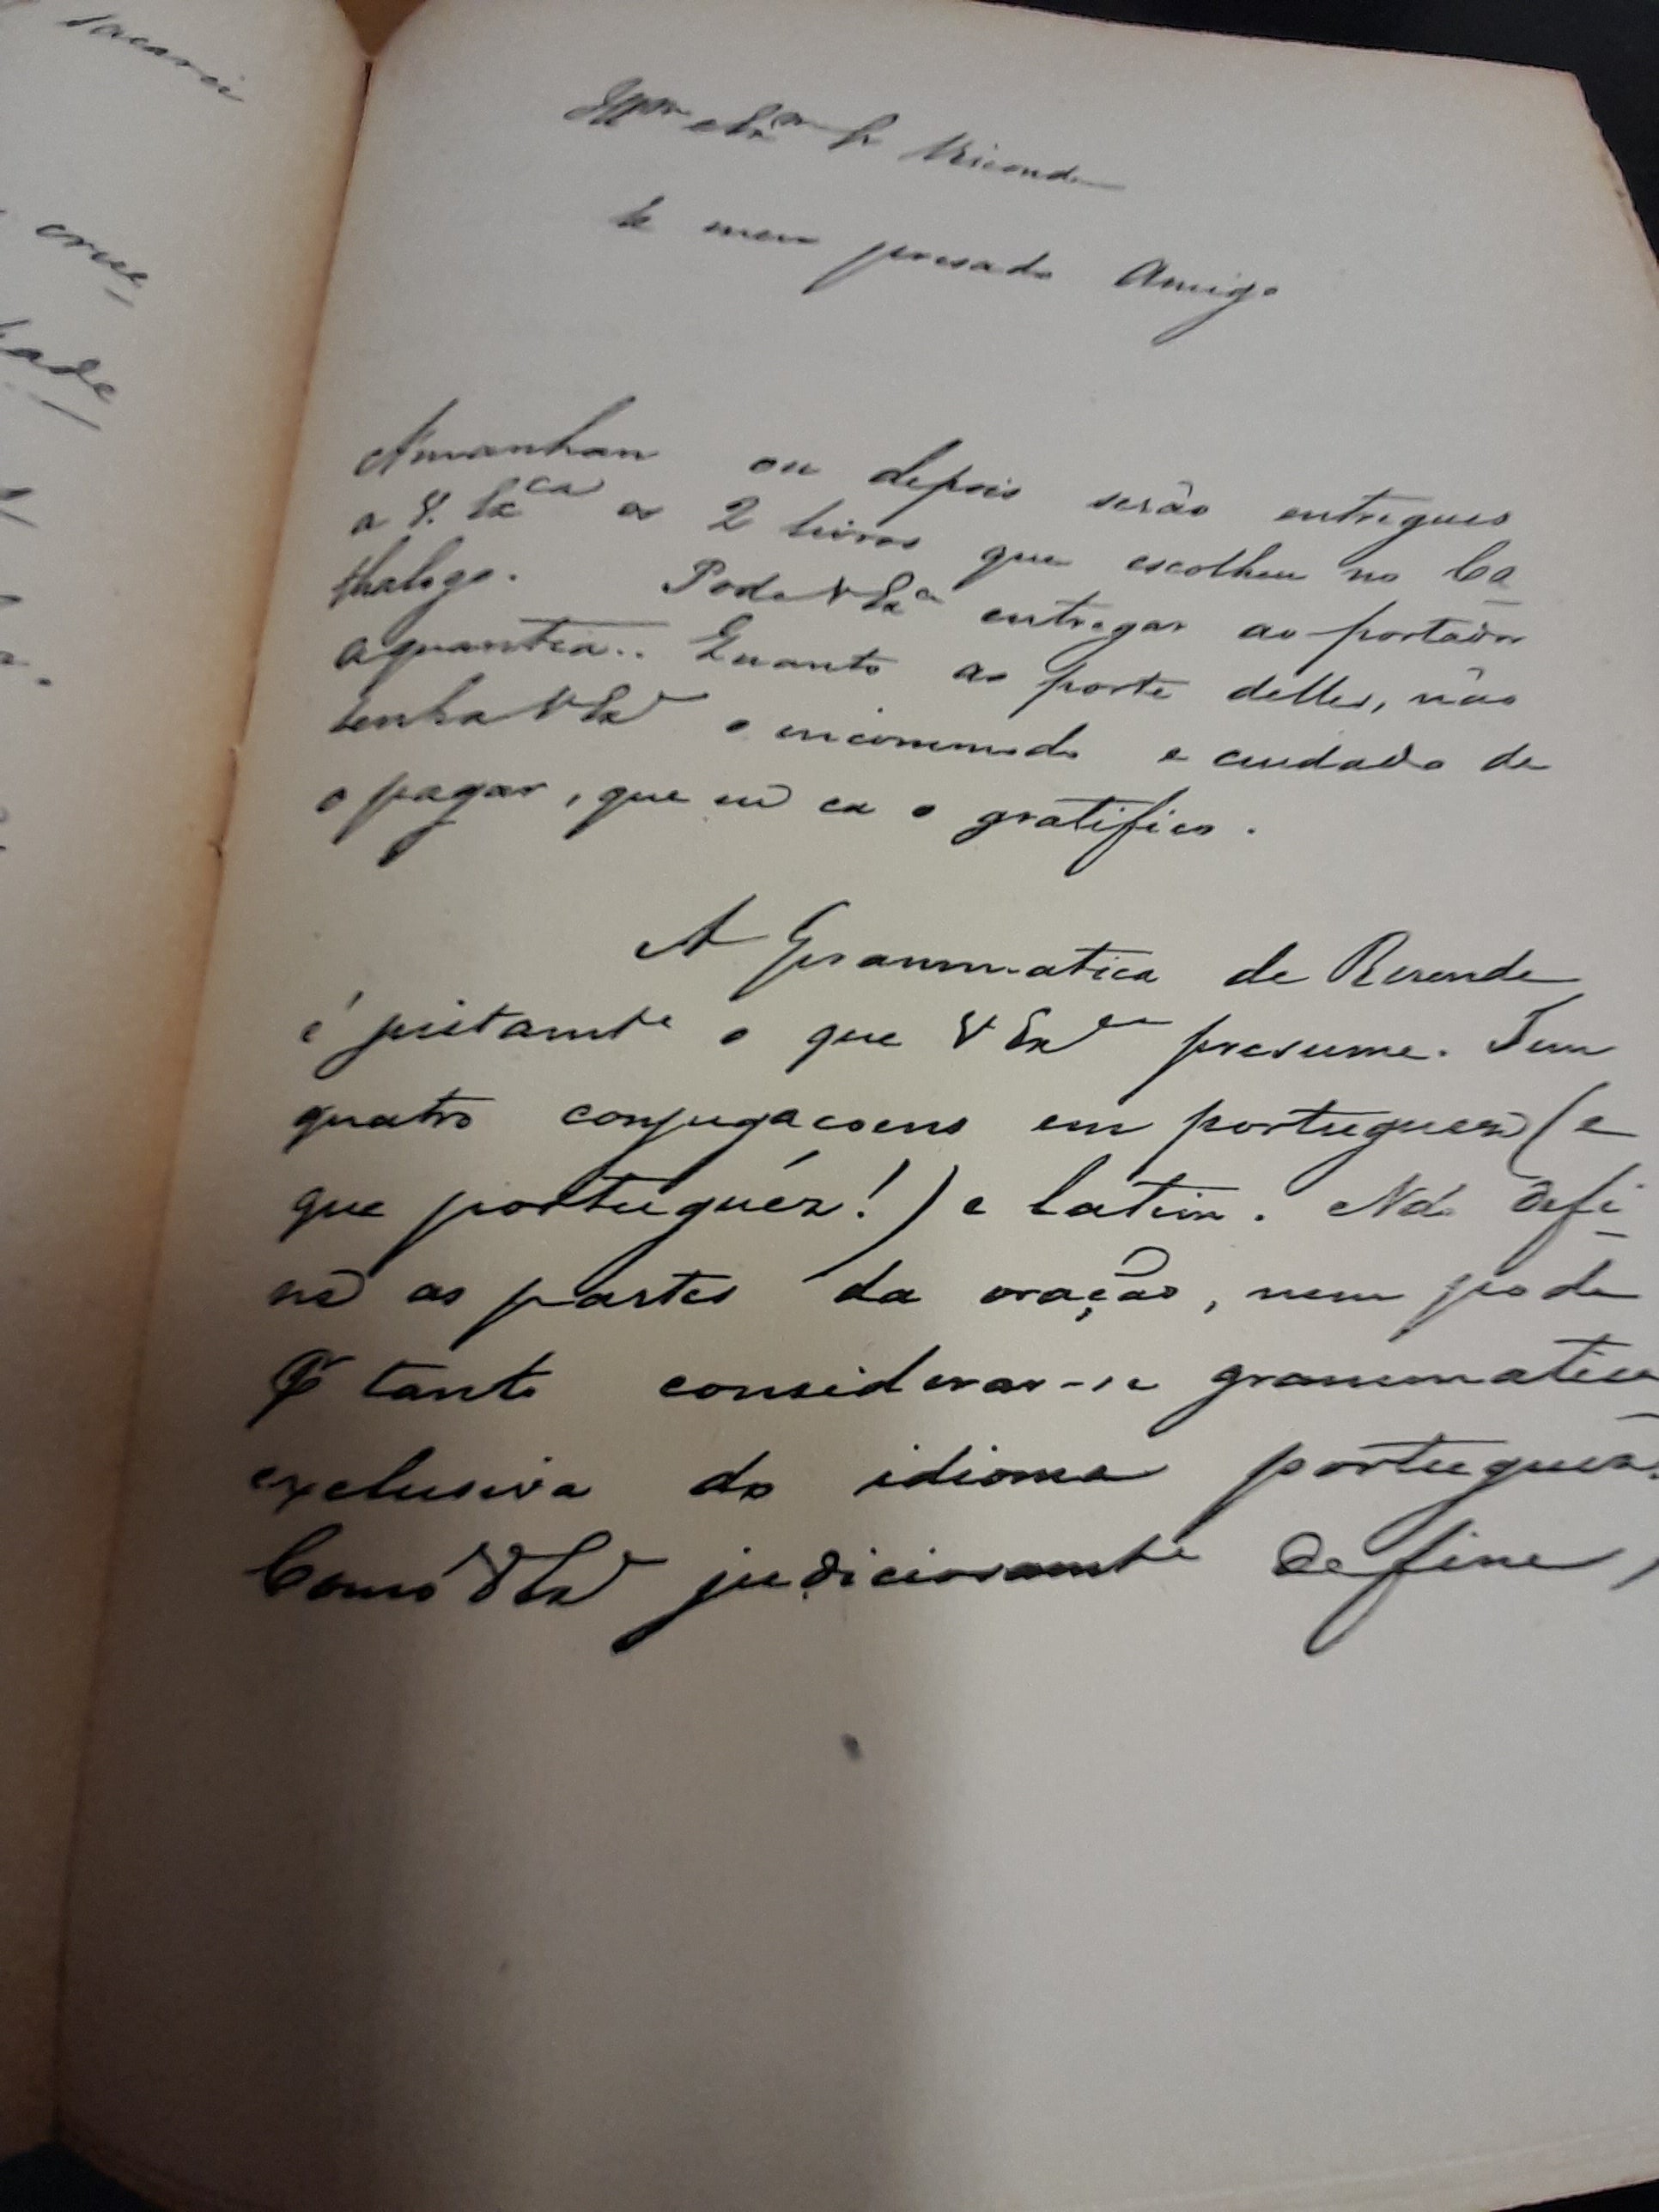 sacarei
crue
dade
Illmo e Exmo Sr Visconde
e meu presado Amigo
Amanhan ou depois serão entregues
a V. Exca os 2 livros que escolheu no Ca
thalogo. Pode V Exa entregar ao portador
a quantia.. Quanto ao porte delles, não
tenha V Exa o incommodo e cuidado de
o pagar, que eu ca o gratifico.
A Grammatica de Resende
é justamte o que V Exa presume. Tem
quatro conjugacoens em portuguez (e
que portuguéz!) e latim. Não defi
ne as partes da oração, nem pode
Ptanto considerar-se grammatica
exclusiva do idioma portuguez.
Como V Exa judiciosamte define,